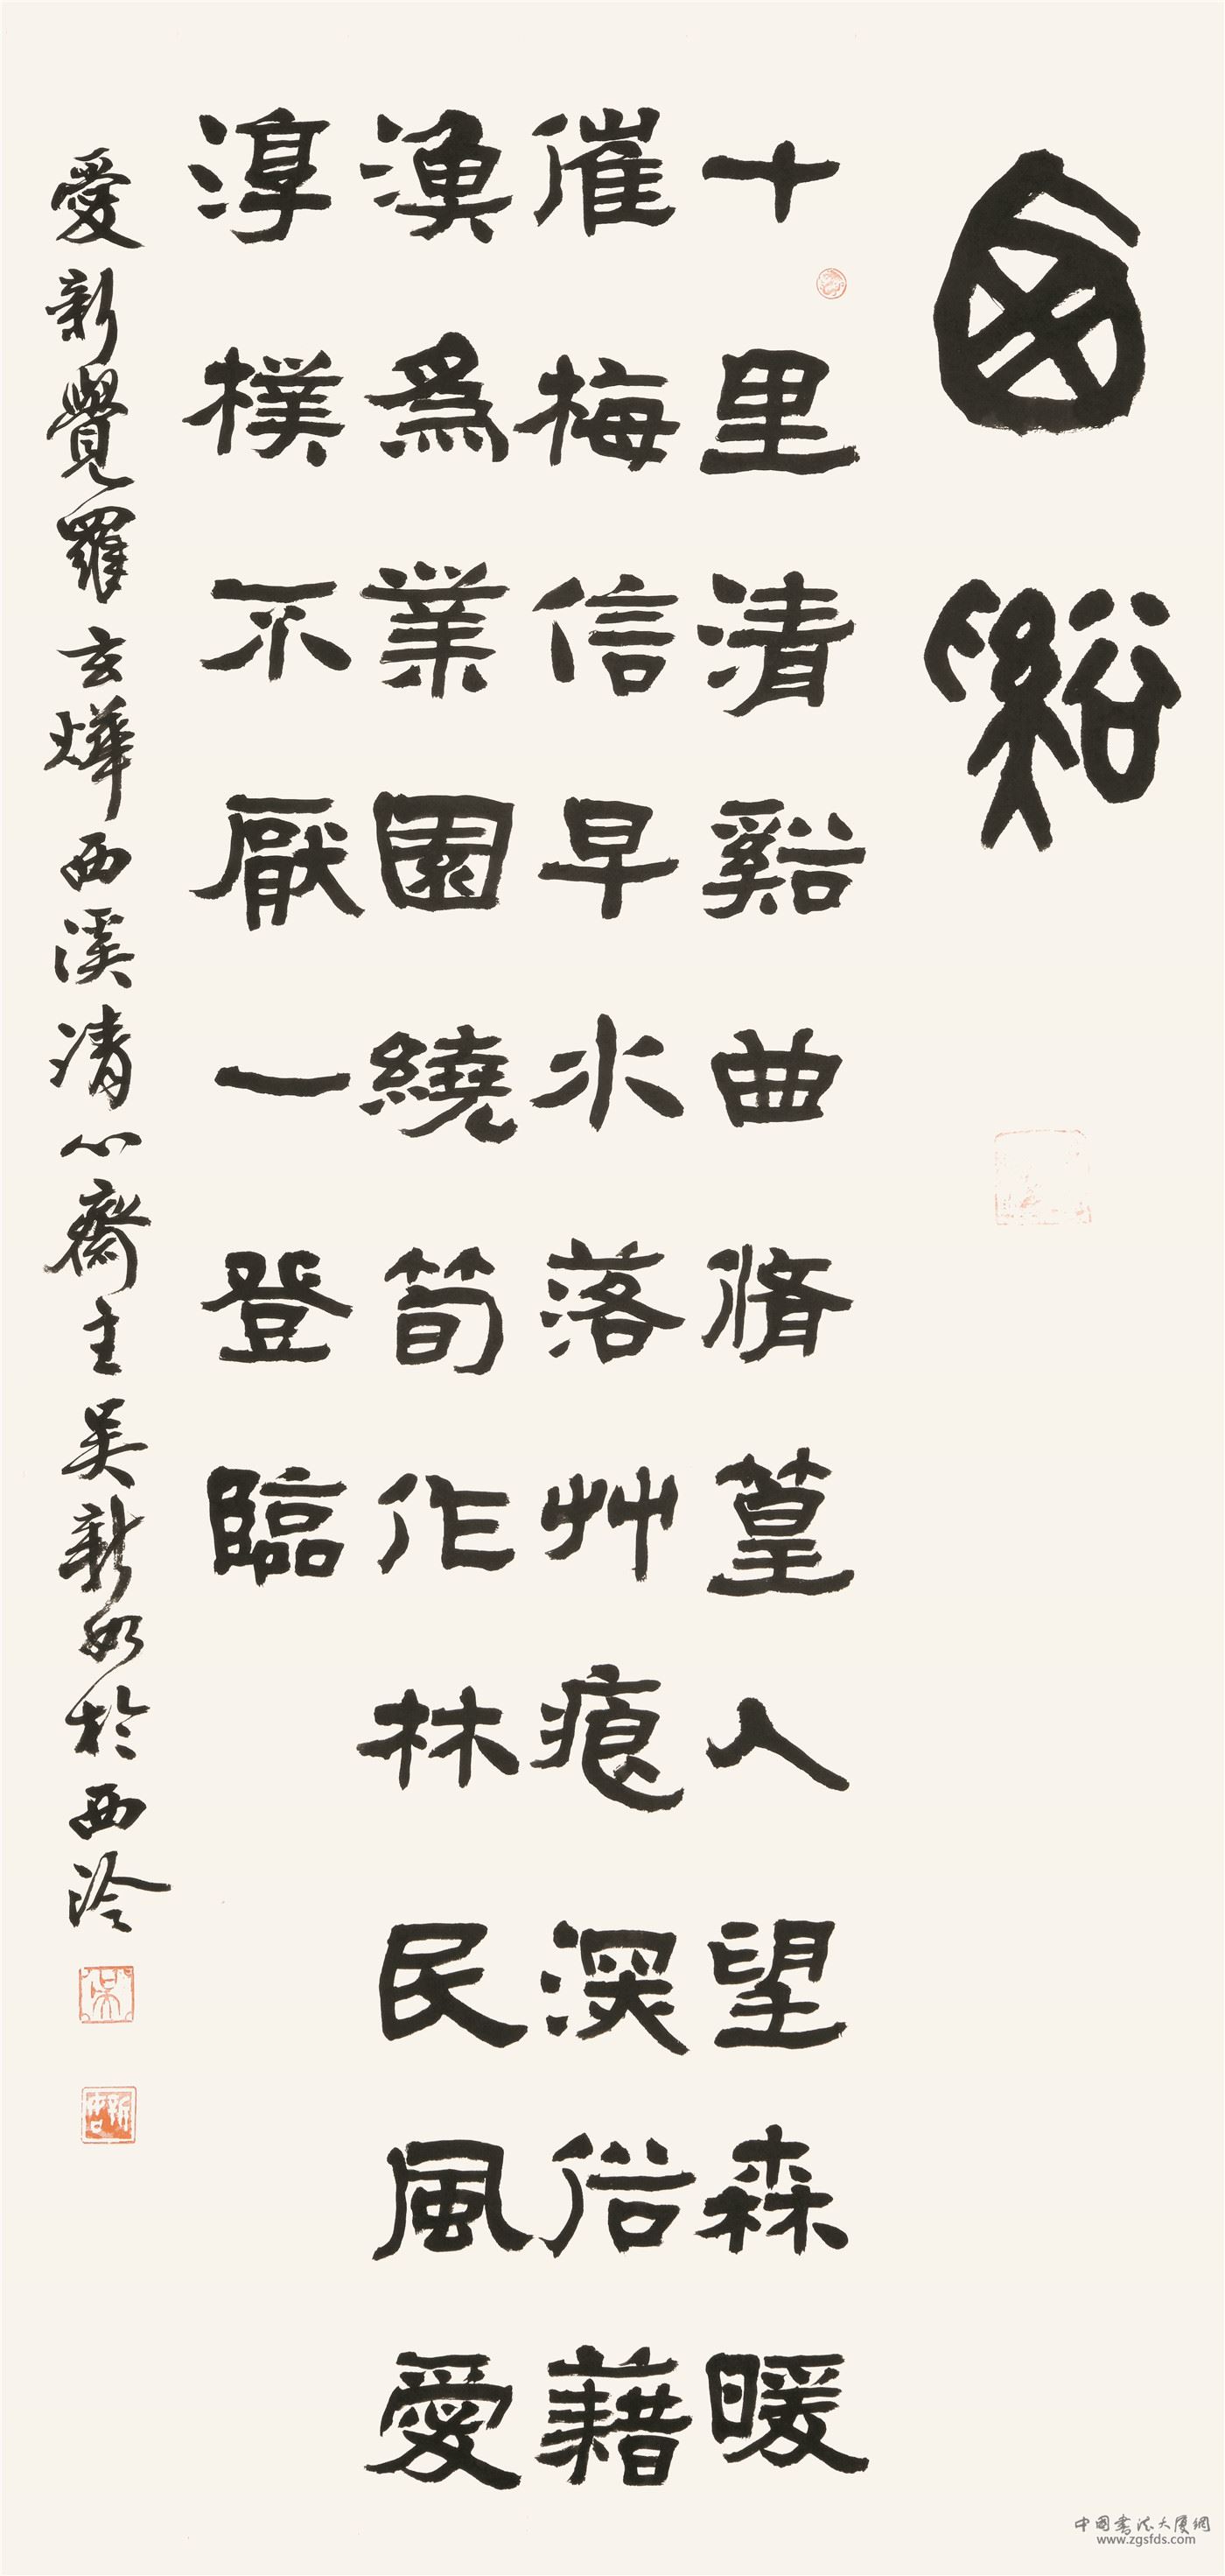 西谿
十里清谿曲脩篁人望森暖
催梅信早水落艸痕深俗藉
漁為業園繞筍作林民風愛
淳樸不厭一登臨
愛新覺羅玄燁西溪清心齋主吴新如於西泠
中国書法大厦網
www.zgsfds.com